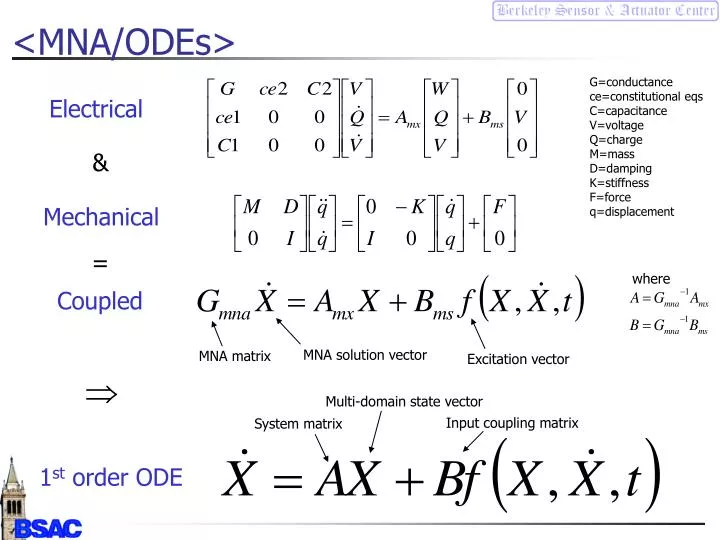 Berkeley Sensor & Actuator Center
<MNA/ODEs>
Electrical
[G ce2 C2; ce1 0 0; C1 0 0] [V; Q̇; V̇] = A_mx [W; Q; V] + B_ms [0; V; 0]
G=conductance
ce=constitutional eqs
C=capacitance
V=voltage
Q=charge
M=mass
D=damping
K=stiffness
F=force
q=displacement
&
Mechanical
[M D; 0 I] [q̈; q̇] = [0 −K; I 0] [q̇; q] + [F; 0]
=
Coupled
G_mna Ẋ = A_mx X + B_ms f(X, Ẋ, t)
where
A = G_mna⁻¹ A_mx
B = G_mna⁻¹ B_ms
MNA matrix
MNA solution vector
Excitation vector
⇒
Multi-domain state vector
System matrix
Input coupling matrix
1st order ODE
Ẋ = AX + Bf(X, Ẋ, t)
BSAC